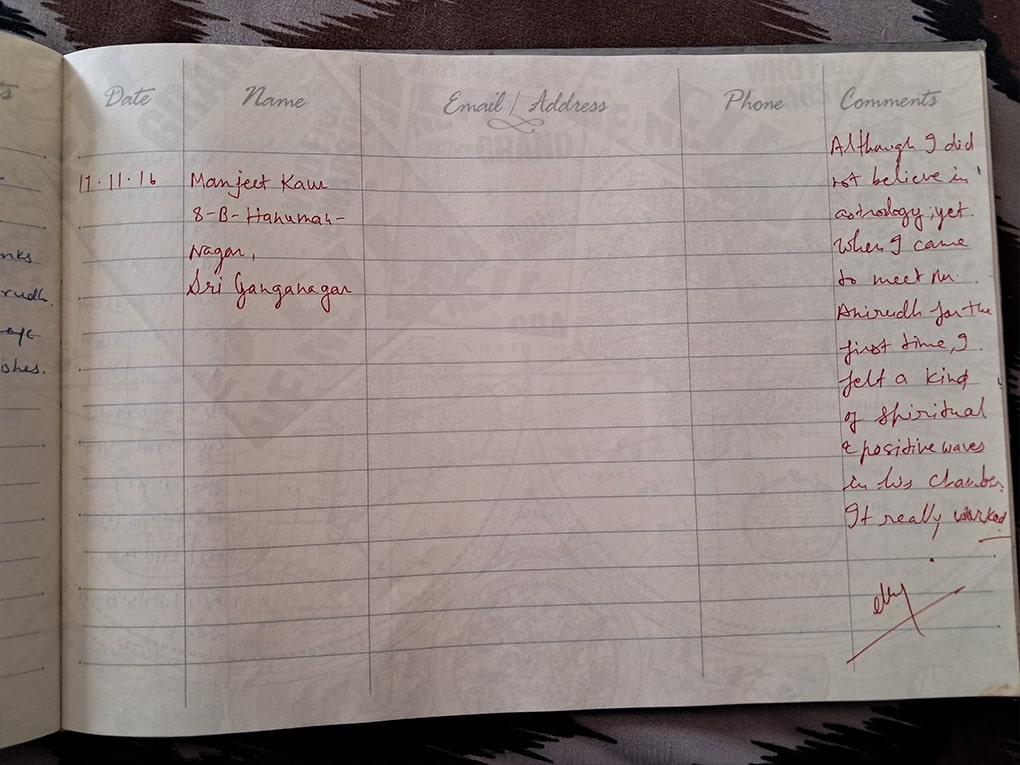 ts
Date Name Email / Address Phone Comments
Although I did
17.11.16 Manjeet Kaur not believe in
8-B-Hanuman- astrology, yet
Nagar, When I came
Sri Ganganagar to meet Mr.
Anirudh for the
first time, I
felt a kind
of spiritual
& positive waves
in his chamber.
It really worked
nks
rudh.
eye
ishes.